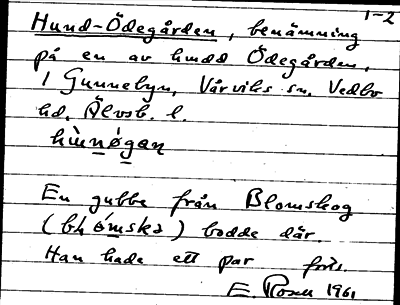 1-2
Hund-Ödegården, benämning
på en av hmdd Ödegården,
1 Gunnebyn, Vårviks sn. Vedbo
hd. Älvsb. l.
hùnǿgan
En gubbe från Blomskog
(blómska) bodde där.
Han hade ett par
E Rosell 1961